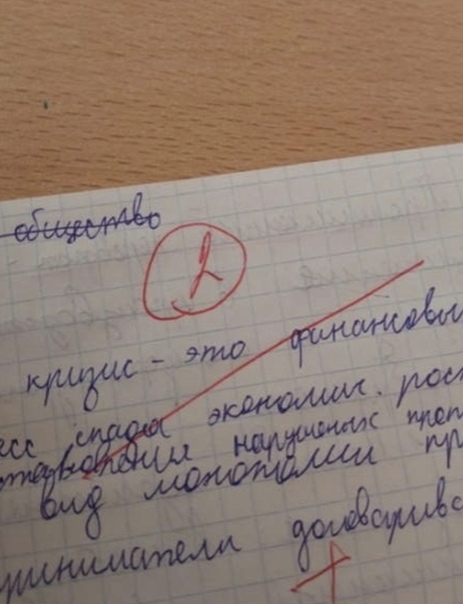 общество
2
кризис - это финансовы
есс спада экономич. рос
нарушеных
вид монополии пр
приниматели договарива